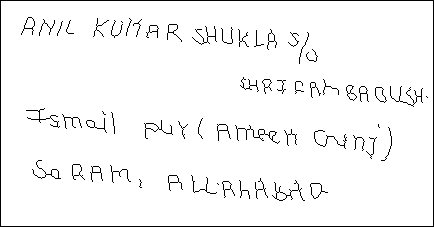 ANIL KUMAR SHUKLA S/O
SHRI RAM BABU SH.
Ismail PUY (Ameen Gunj)
SORAM, ALLAHABAD